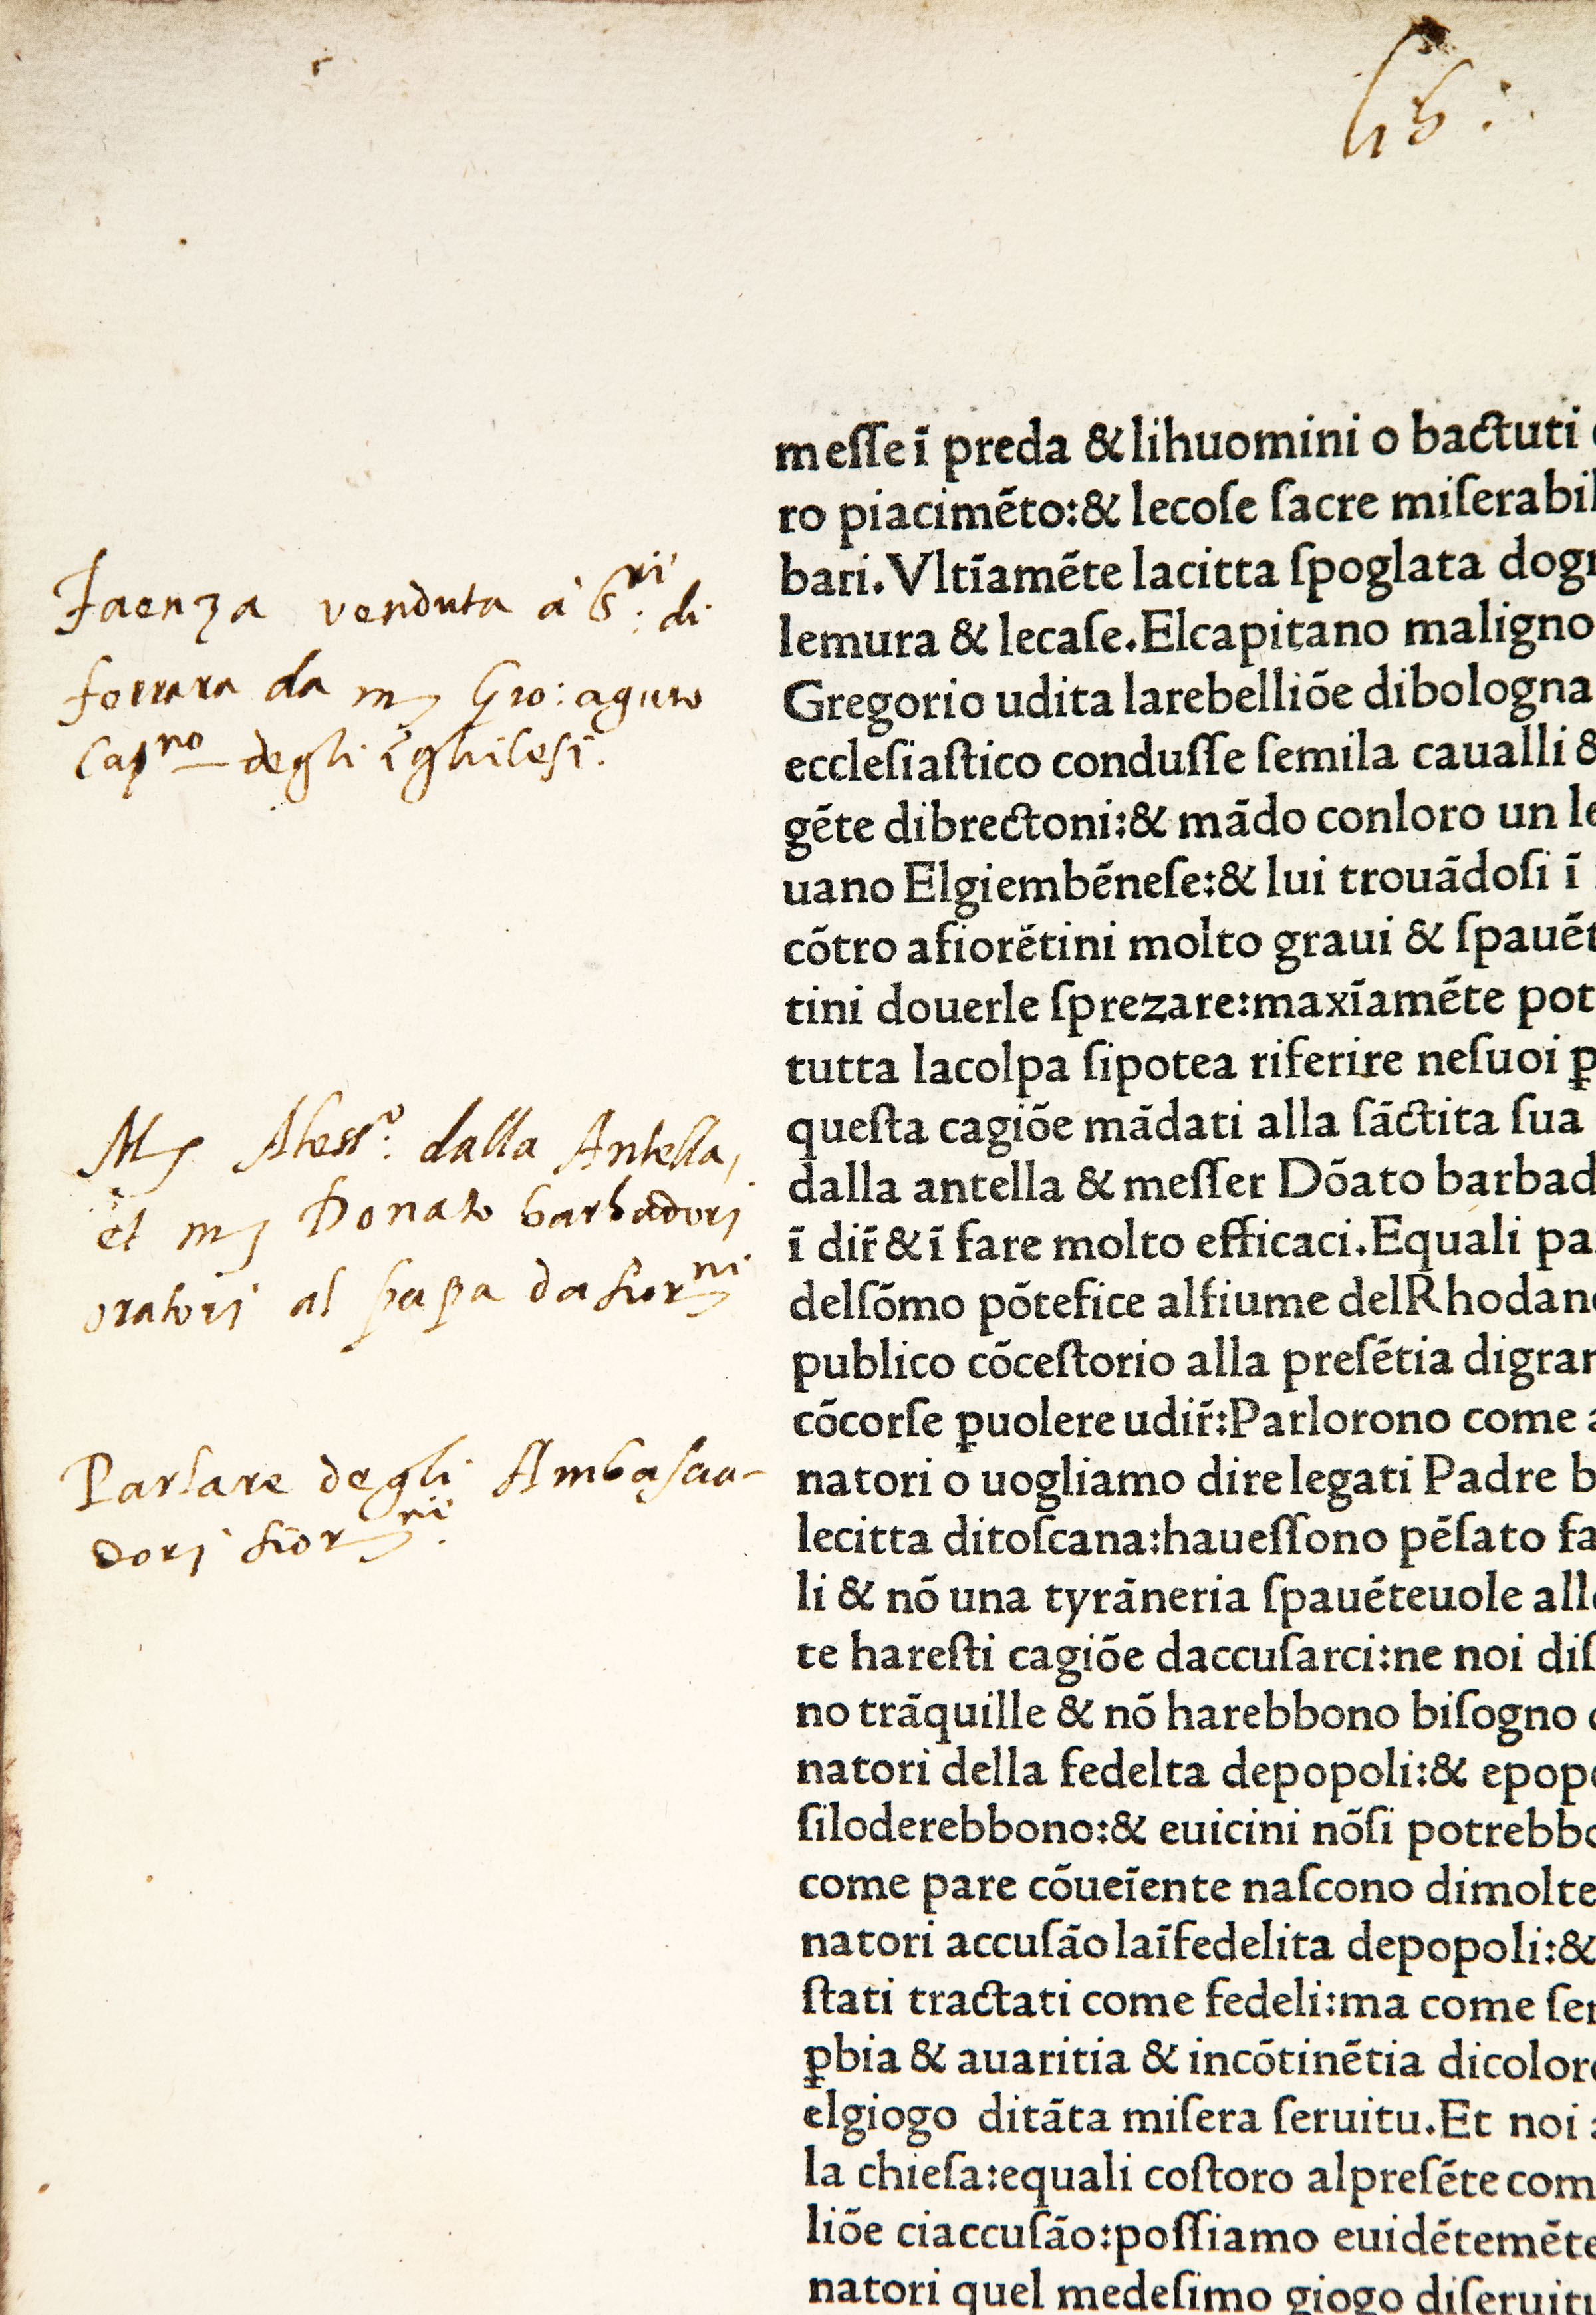 lib:
Faenza venduta à S.ri di
ferrara da m. Gio: aguto
Cap.no degli Ighilesi.
M. Aless.o dalla Antella,
et m. Donato barbadori
oratori al papa da fior.ni
Parlare degli Ambascia-
dori fior.ni
meſſe ī preda & lihuomini o bactuti
ro piacimēto:& lecoſe ſacre miſerabil
bari.Vltīamēte lacitta ſpoglata dogn
lemura & lecaſe.Elcapitano maligno
Gregorio udita larebelliōe dibologna
eccleſiaſtico conduſſe ſemila caualli &
gēte dibrectoni:& mādo conloro un le
uano Elgiembēneſe:& lui trouādoſi ī
cōtro afiorētini molto graui & ſpauēt
tini douerle ſprezare:maxīamēte pot
tutta lacolpa ſipotea riferire neſuoi ꝑ
queſta cagiōe mādati alla ſāctita ſua
dalla antella & meſſer Dōato barbad
ī dir̄ & ī fare molto efficaci.Equali pa
delſōmo pōtefice alfiume delRhodano
publico cōceſtorio alla preſētia digran
cōcorſe ꝑuolere udir̄:Parlorono come a
natori o uogliamo dire legati Padre b
lecitta ditoſcana:haueſſono pēſato fa
li & nō una tyrāneria ſpauēteuole alle
te hareſti cagiōe daccuſarci:ne noi diſ
no trāquille & nō harebbono biſogno
natori della fedelta depopoli:& epopo
ſiloderebbono:& euicini nōſi potrebbo
come pare cōueīente naſcono dimolte
natori accuſāo laīfedelita depopoli:&
ſtati tractati come fedeli:ma come ſer
ꝑbia & auaritia & incōtinētia dicoloro
elgiogo ditāta miſera ſeruitu.Et noi a
la chieſa:equali coſtoro alpreſēte com
liōe ciaccuſāo:poſſiamo euidētemēte
natori quel medeſimo giogo diſeruitu